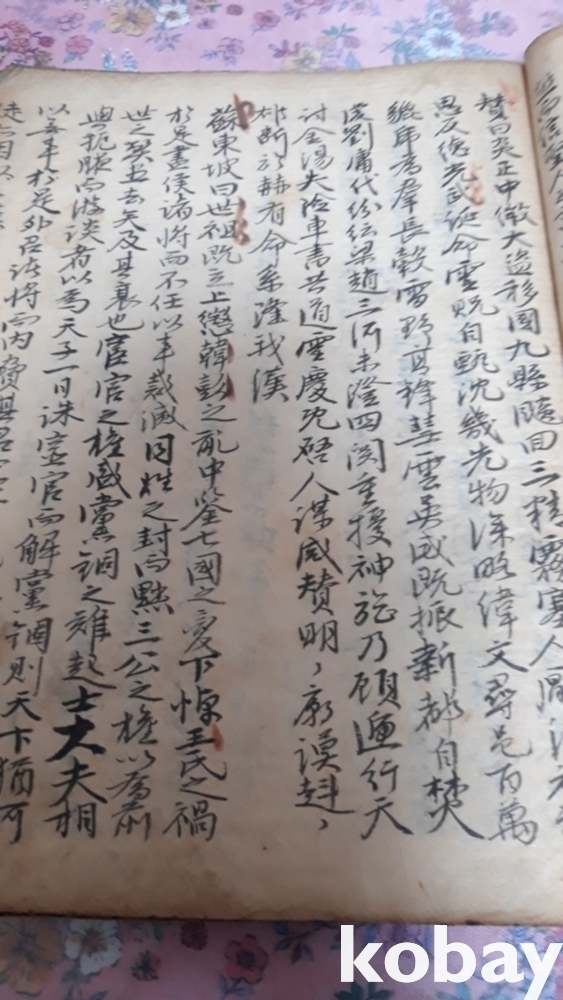 贊曰炎正中微大盜移國九縣飈回三精霧塞人
思反德光武誕命靈貺自甄沈幾先物深略緯文尋邑百萬
為羣長轂雷野高鋒彗雲英威既振新都自焚
虔劉庸代紛紜梁趙三河未澄四関重擾神旌乃顧遞行天
討金湯失險車書共道靈慶既啓人謀咸贊明、廟謨赳、
雄斷於赫有命系隆我漢
蘇東坡曰世祖既立上懲韓彭之乱中鑒七國之変下悼王氏之禍
於是盡侯諸將而不任以事裁減同姓之封而黜三公之權以為前
世之弊去矣及其衰也宦官之權盛黨錮之難起士大夫相
與扼腕而游談者以為天子一日誅宦官而解黨錮則天下猶可
以無事於是外召諸將而內其君
kobay